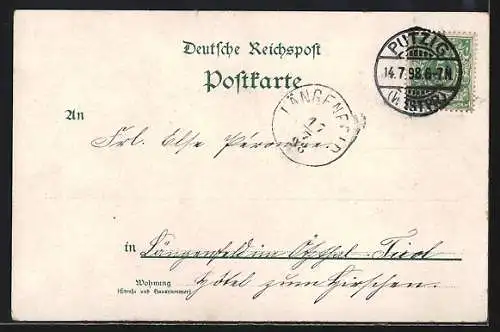 Deutsche Reichspost
Postkarte
PUTZIG
14.7.98.6-7N.
(WESTPR.)
LÄNGENFELD
17
7
98
An
Frl. Else
in Längenfeld im Ötzthal. Tirol
Wohnung
(Straße und Hausnummer)
Hôtel zum Hirschen.